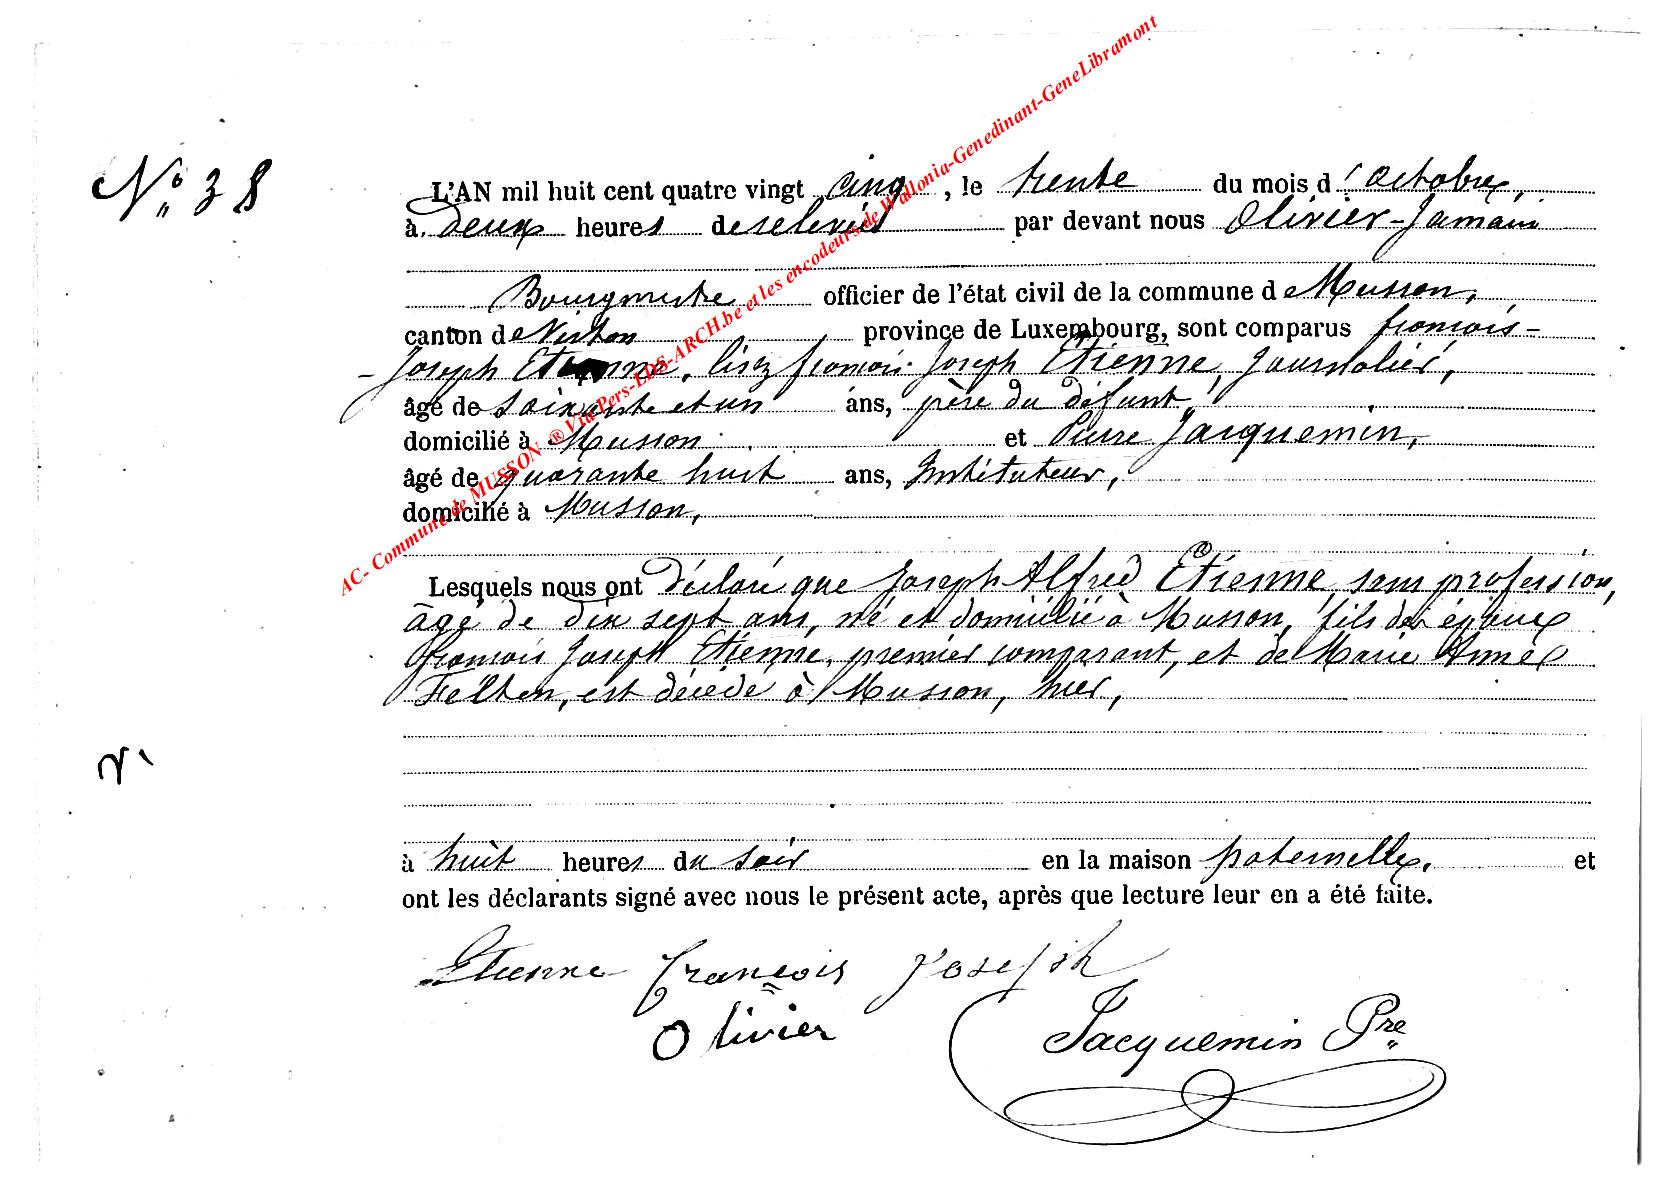 N° 38
L'AN mil huit cent quatre vingt cinq, le trente du mois d'octobre,
à deux heures de relevée par devant nous Olivier-Jamain
Bourgmestre officier de l'état civil de la commune de Musson,
canton de Virton province de Luxembourg, sont comparus françois-
-Joseph Etienne, lisez françois Joseph Etienne, Journalier,
âgé de soixante et un ans, père du défunt,
domicilié à Musson et Pierre Jacquemin,
âgé de quarante huit ans, Instituteur,
domicilié à Musson,
Lesquels nous ont déclaré que Joseph Alfred Etienne, sans profession,
âgé de dix sept ans, né et domicilié à Musson, fils des époux
françois Joseph Etienne, premier comparant, et de Marie Anne
Felten, est décédé à Musson, hier,
à huit heures du soir en la maison paternelle, et
ont les déclarants signé avec nous le présent acte, après que lecture leur en a été faite.
Etienne françois Joseph
Olivier
Jacquemin Pre
AC- Commune de MUSSON ® Via Pers-LDS-ARCH.be et les encodeurs de Wallonia-Genedinant-GeneLibramont